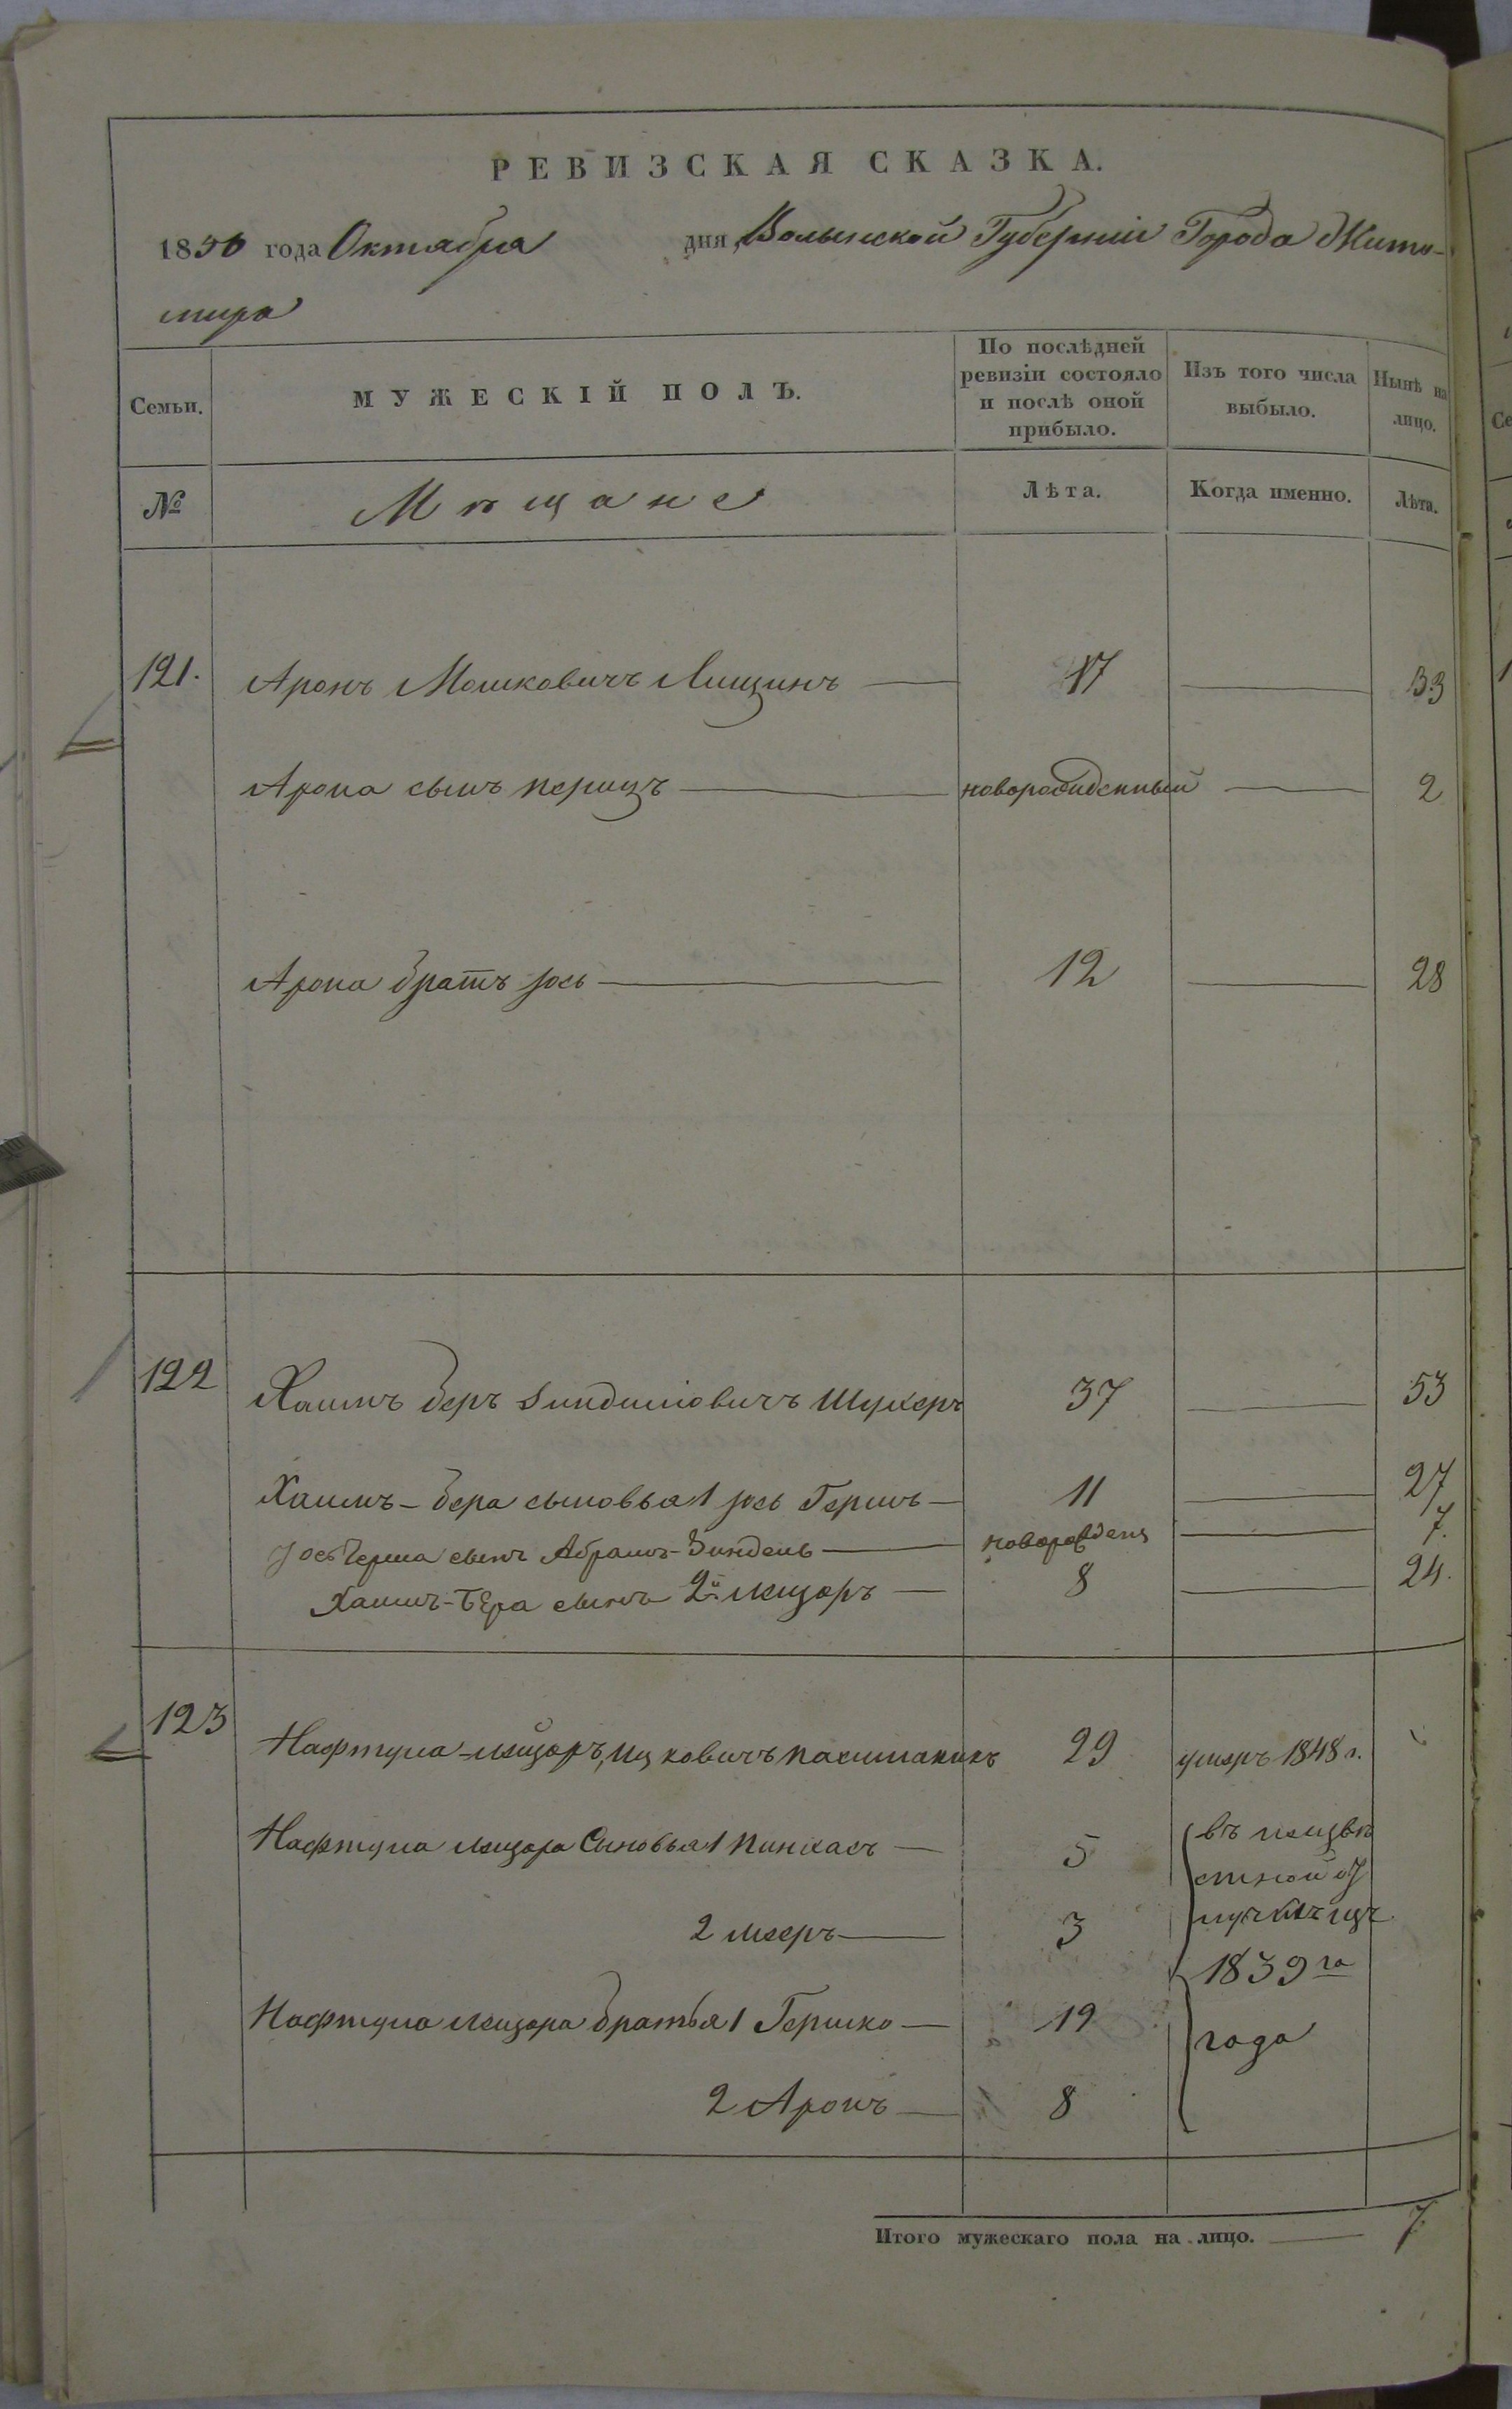 РЕВИЗСКАЯ СКАЗКА.
1850 года Октября дня, Волынской Губерніи Города Жито-
мира
Семьи. МУЖЕСКІЙ ПОЛЪ. По послѣдней ревизіи состояло и послѣ оной прибыло. Изъ того числа выбыло. Нынѣ на лицо.
№ Мѣщане Лѣта. Когда именно. Лѣта.
121. Аронъ Мошковичъ Лищинъ — 17 — 33
Арона сынъ перицъ — новорожденный — 2
Арона братъ Jось — 12 — 28
122 Хаимъ беръ Зинделіовичъ Шухеръ 37 — 53
Хаимъ-бера сыновья 1 Jось Гершъ — 11 — 27
Jось Герша сынъ Абрамъ-Зиндель — новорожденъ — 7.
Хаимъ-Бера сынъ 2й Лейзоръ — 8 — 24.
123 Нафтула-лейзоръ, Ицковичъ 29 умеръ 1848 г.
Нафтула лейзора Сыновья 1 Пинхасъ — 5 въ неизвѣ
стной от
2 мееръ — 3
1839 го
Нафтула лейзора братья 1 Гершко — 19 года
2 Аронъ — 8
Итого мужескаго пола на лицо. — 7.